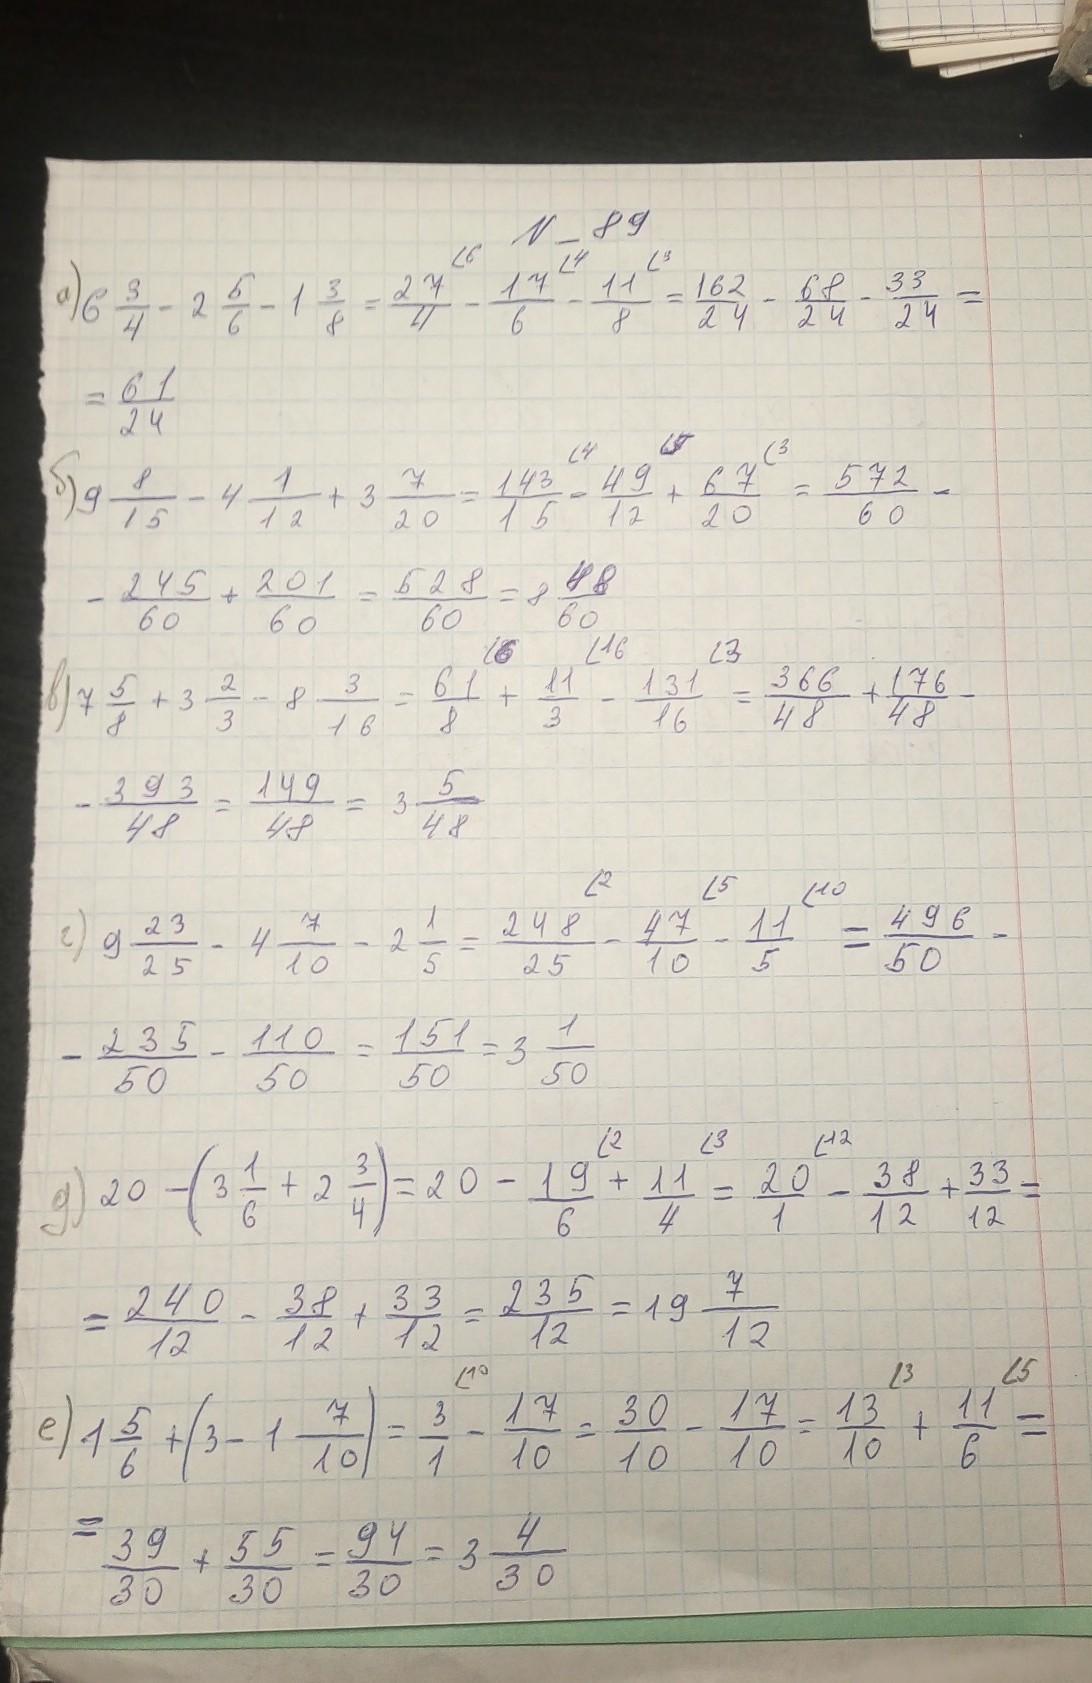 N_89
а) 6 3/4 - 2 5/6 - 1 3/8 = 27/4 (6 - 17/6 (4 - 11/8 (3 = 162/24 - 68/24 - 33/24 =
= 61/24
б) 9 8/15 - 4 1/12 + 3 7/20 = 143/15 (4 - 49/12 (5 + 67/20 (3 = 572/60 -
- 245/60 + 201/60 = 528/60 = 8 48/60
в) 7 5/8 + 3 2/3 - 8 3/16 = 61/8 (6 + 11/3 (16 - 131/16 (3 = 366/48 + 176/48 -
- 393/48 = 149/48 = 3 5/48
г) 9 23/25 - 4 7/10 - 2 1/5 = 248/25 (2 - 47/10 (5 - 11/5 (10 = 496/50 -
- 235/50 - 110/50 = 151/50 = 3 1/50
д) 20 - (3 1/6 + 2 3/4) = 20 - 19/6 (2 + 11/4 (3 = 20/1 (12 - 38/12 + 33/12 =
= 240/12 - 38/12 + 33/12 = 235/12 = 19 7/12
е) 1 5/6 + (3 - 1 7/10) = 3/1 (10 - 17/10 = 30/10 - 17/10 = 13/10 (3 + 11/6 (5 =
= 39/30 + 55/30 = 94/30 = 3 4/30